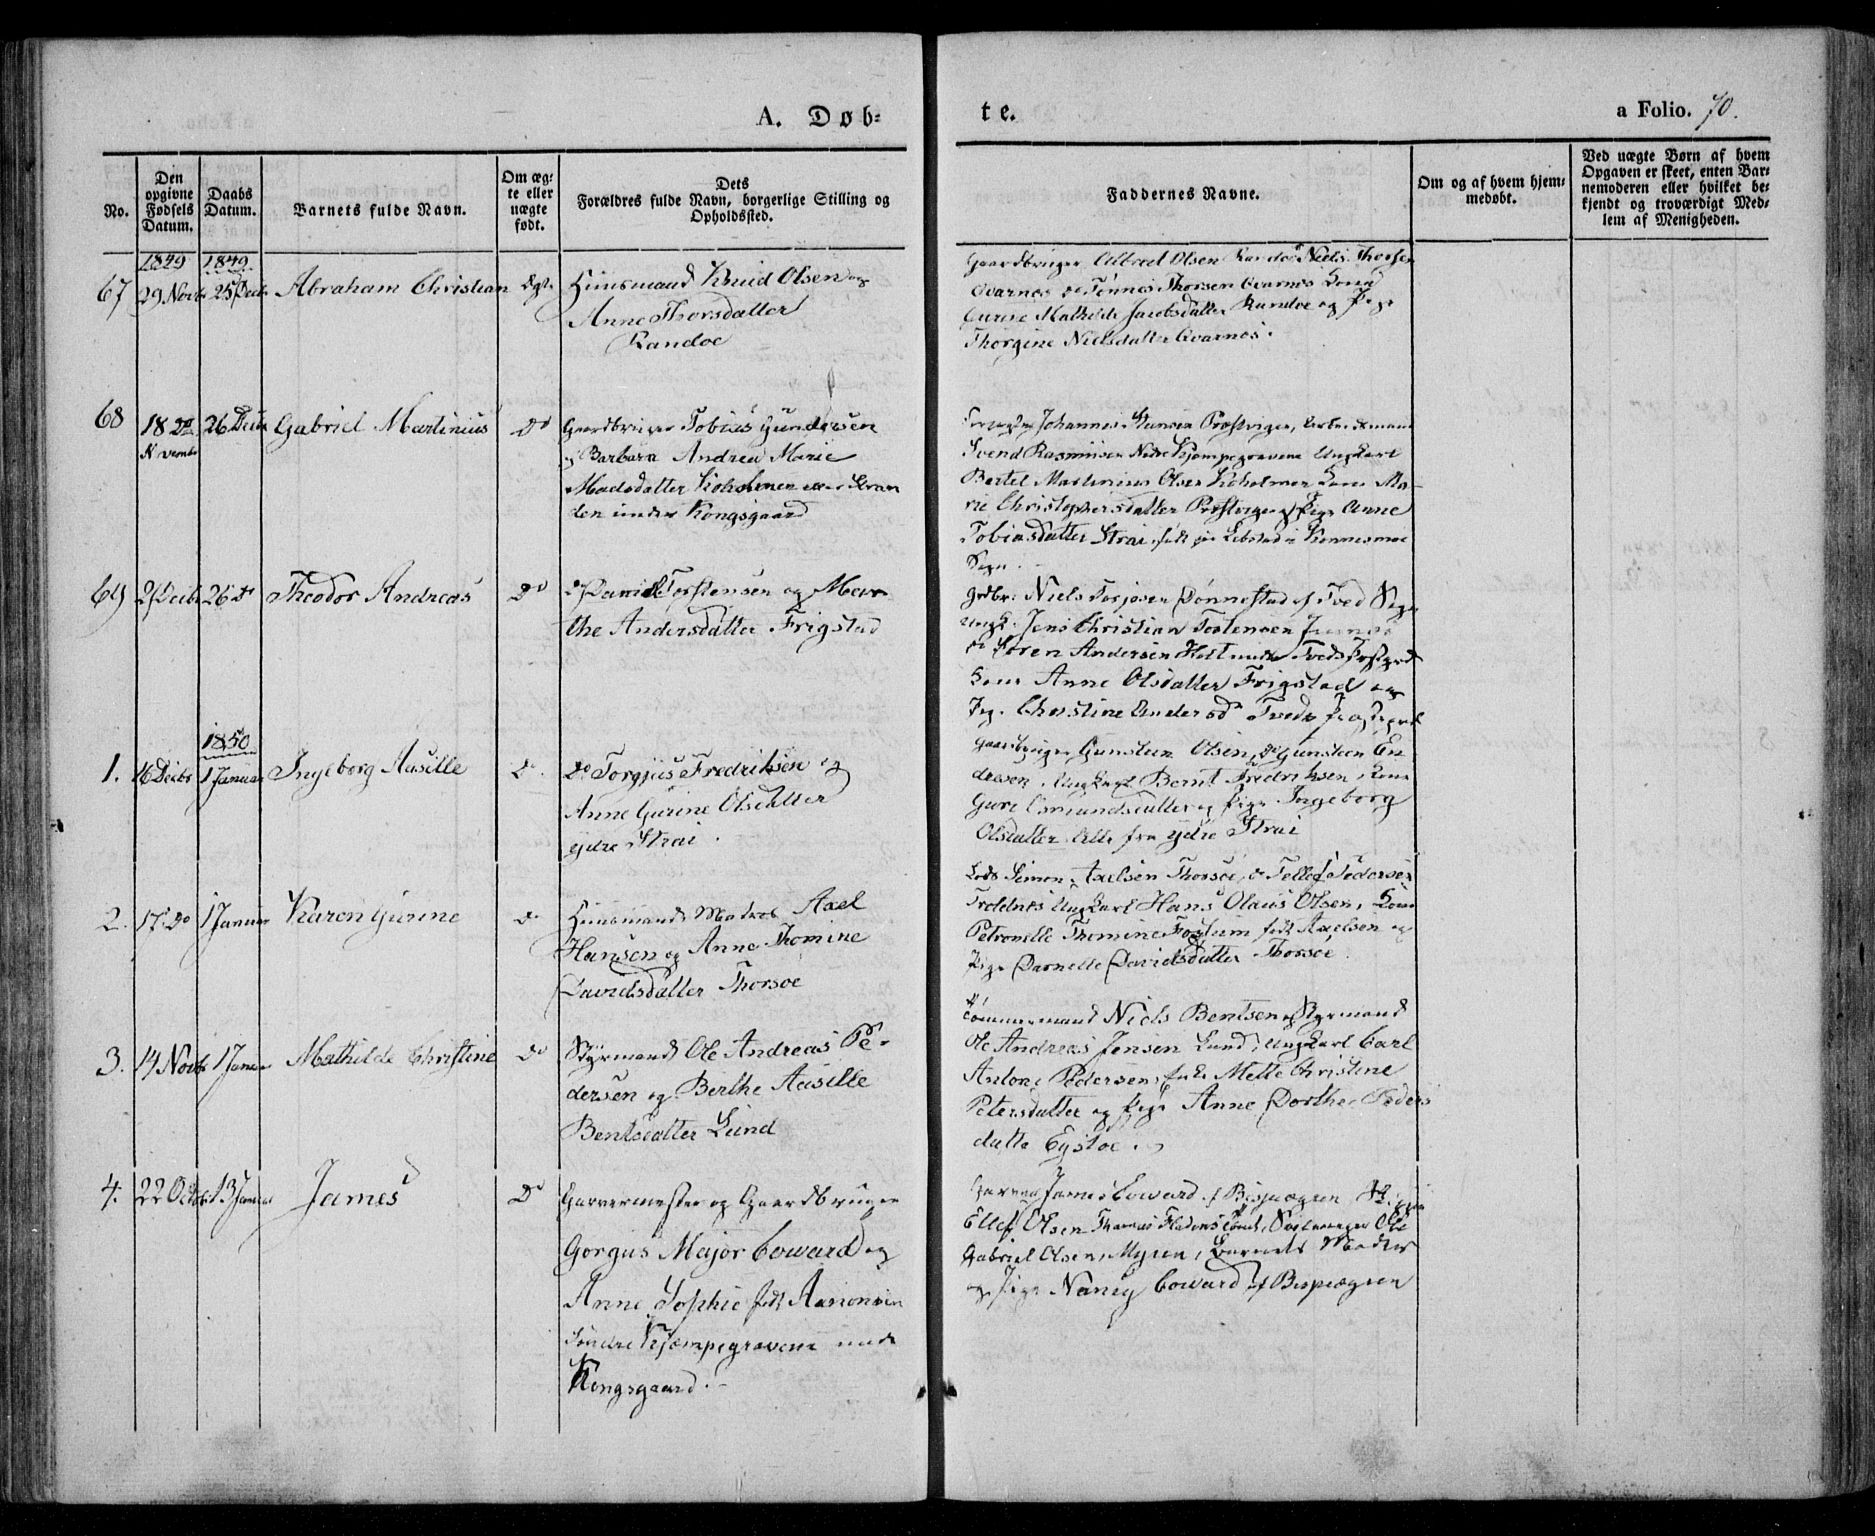 A. Døb-
te.
a Folio. 70.
No.
Den opgivne Fødsels Datum.
Daabs Datum.
Barnets fulde Navn.
Om ægte eller uægte født.
Dets Forældres fulde Navn, borgerlige Stilling og Opholdssted.
Faddernes Navne.
Om og af hvem hjemmedøbt.
Ved uægte Børn af hvem Opgaven er skeet, enten Barnemoderen eller hvilket bekjendt og troværdigt Medlem af Menigheden.
1849 1849
67 29 Novbr 25 Decbr Abraham Christian Ægte
Huusmand Knud Olsen og
Anne Thorsdatter
Randøe
Gaardbruger Olsen Randøe Niels Thorsen
Qvarnes Do Tønnes Thorsen Qvarnes Kone
Gurine Mathilde Jacobsdatter Randøe og Pige
Thorgine Nielsdatter Qvarnes.
68 18 Do 26 Decbr Gabriel Martinius Do
Novembr
Gaardbruger Tobias Gundersen
og Barbara Andrea Marie
Madsdatter Koholmen Stran
den under Kongsgaard
Johannes Hansen Præstvigen, Arbeidsmand
Svend Rasmusen Nedre Kjempegravene Ungkarl
Bertel Martinius Olsen Koholmen Kone Ma-
rie Christophersdatter Præstvigen og Pige Anne
Tobiasdatter Strai, født i
Sogn.
69 2 Decbr 26 Do Theodor Andreas Do
Do Daniel Torstensen og Mar-
the Andersdatter Frigstad
Grdbr: Niels Torjusen Dønnestad af Tved Sogn
Ungk. Jens Christian Tostensen
Do Søren Andersen Tveds Præstgrd
Kone Anne Olsdatter Frigstad og
Pig. Christine Andersd Tveds Præstegrd
1850
1. 16 Decbr 1 Januar Ingeborg Aasille Do
Do Torgius Fredriksen og
Anne Gurine Olsdatter
ydre Strai.
Gaardbruger Gunsten Olsen, Do Gunsten En-
dresen, Ungkarl Bernt Fredriksen, Kone
Guro Osmundsdatter og Pige Ingeborg
Olsdatter Alle fra ydre Strai
2. 17 Do 1 Januar Karen Gurine Do
Huusmand Matros Axel
Hansen og Anne Thomine
Davidsdatter Thorsøe
Lods Simon Axelsen Thorsøe, Do Tellef Pedersen
Troldnes Ungkarl Hans Olaus Olsen, Kone
Petronelle Thomine født Axelsen og
Pige Dornette Davidsdatter Thorsøe.
3. 14 Novbr 1 Januar Mathilde Christine Do
Styrmand Ole Andreas Pe-
dersen og Berthe Aasille
Bentsdatter Lund
Tømmermand Niels Bentsen og Styrmand
Ole Andreas Jensen Lund, Ungkarl Carl
Anton Pedersen, Enke Mette Christine
Petersdatter og Pige Anne Dorthe Peders
datter Egsøe.
4. 22 Octobr 13 Januar James Do
Garvermester og Gaardbruger
Gorgus Major Coward og
Anne Sophie født Aanonsen
Søndre Kjæmpegravene under
Kongsgaard.
Garver James Coward af Bispegræn
Ellef Olsen Ole
Gabriel Olsen, Myren, Barnets Moder
og Pige Nancy Coward af Bispegræen